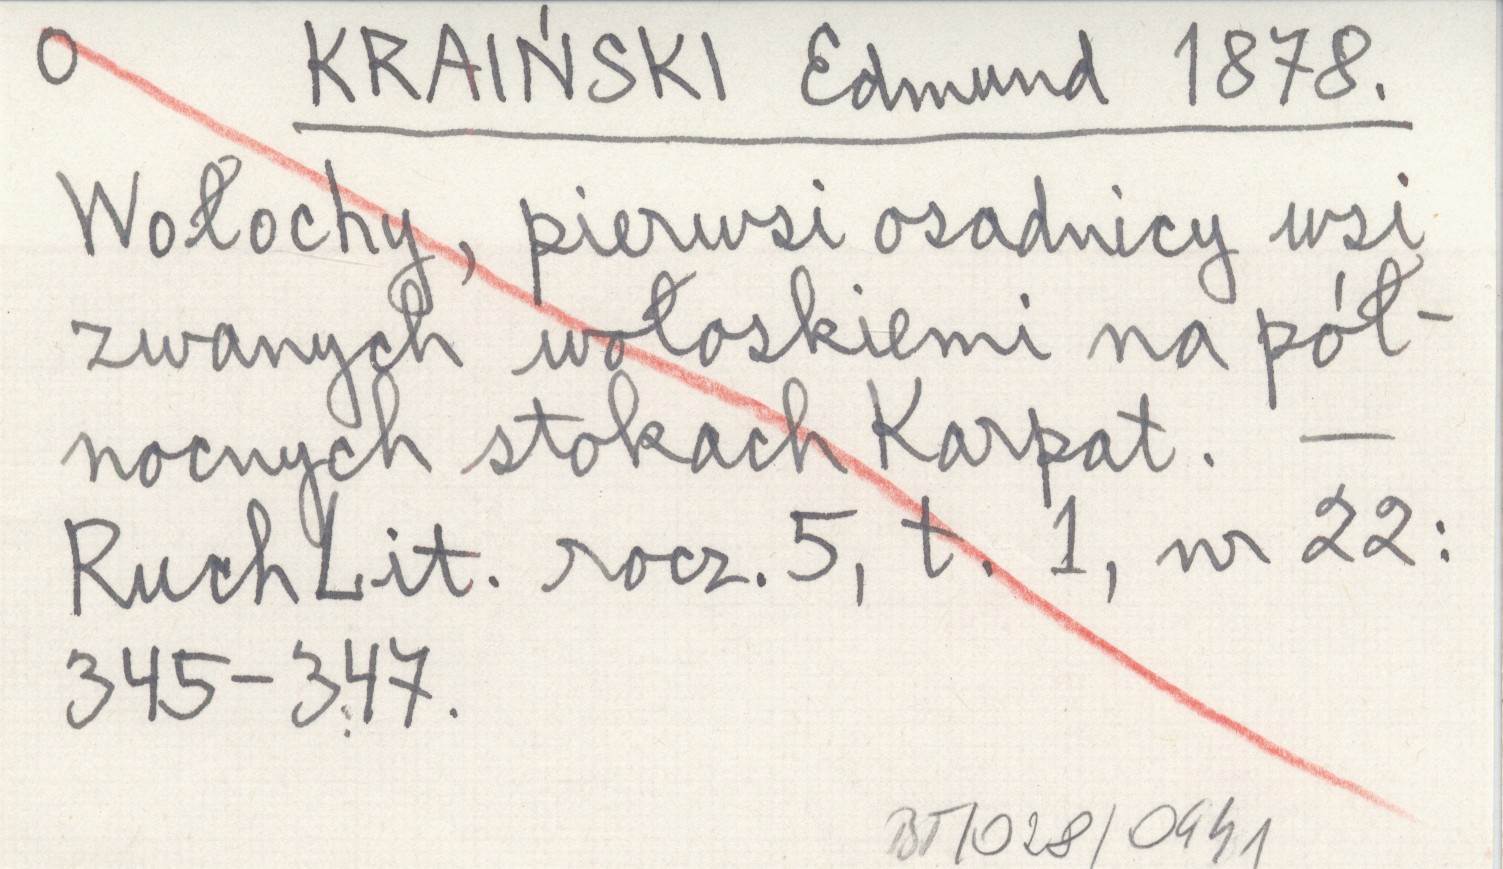 O KRAIŃSKI Edmund 1878.
Wołochy, pierwsi osadnicy wsi
zwanych wołoskiemi na pół-
nocnych stokach Karpat. —
RuchLit. rocz. 5, t. 1, nr 22:
345-347.
BT/028/0941